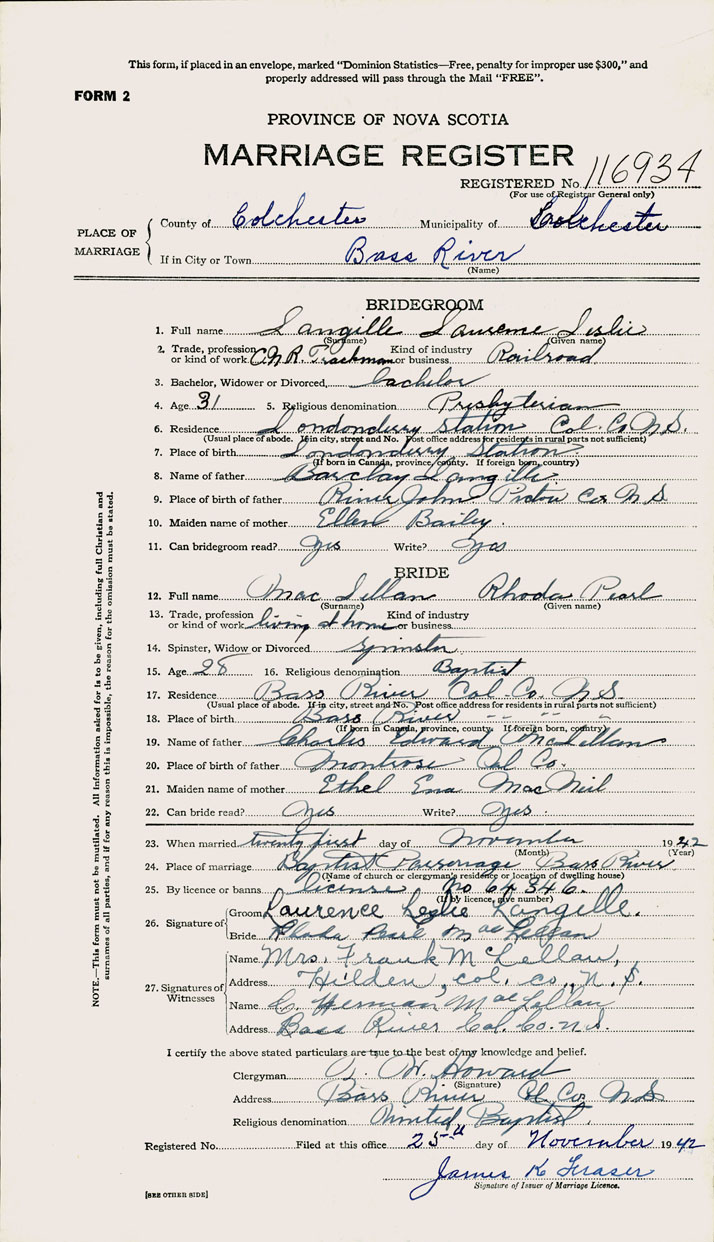 This form, if placed in an envelope, marked "Dominion Statistics—Free, penalty for improper use $300," and
properly addressed will pass through the Mail "FREE".
FORM 2
PROVINCE OF NOVA SCOTIA
MARRIAGE REGISTER
REGISTERED No. 116934
(For use of Registrar General only)
PLACE OF MARRIAGE
County of Colchester Municipality of Colchester
If in City or Town Bass River
(Name)
BRIDEGROOM
1. Full name Langille Laurence Leslie
(Surname) (Given name)
2. Trade, profession or kind of work C.N.R. Trackman Kind of industry or business Railroad
3. Bachelor, Widower or Divorced, bachelor
4. Age 31 5. Religious denomination Presbyterian
6. Residence Londonderry Station Col. Co. N.S.
(Usual place of abode. If in city, street and No. Post office address for residents in rural parts not sufficient)
7. Place of birth Londonderry Station
(If born in Canada, province, county. If foreign born, country)
8. Name of father Barclay Langille
9. Place of birth of father River John Pictou Co N S
10. Maiden name of mother Ellen Bailey.
11. Can bridegroom read? yes Write? yes
BRIDE
12. Full name MacLellan Rhoda Pearl
(Surname) (Given name)
13. Trade, profession or kind of work living at home Kind of industry or business
14. Spinster, Widow or Divorced Spinster
15. Age 28 16. Religious denomination Baptist
17. Residence Bass River Col. Co. N.S.
(Usual place of abode. If in city, street and No. Post office address for residents in rural parts not sufficient)
18. Place of birth Bass River " " " "
(If born in Canada, province, county. If foreign born, country)
19. Name of father Charles Edward MacLellan
20. Place of birth of father Montrose Col Co.
21. Maiden name of mother Ethel Ena MacNeil
22. Can bride read? Yes Write? Yes
23. When married twenty first day of November 1942
(Month) (Year)
24. Place of marriage Baptist Parsonage Bass River
(Name of church or clergyman's residence or location of dwelling house)
25. By licence or banns license no 64346.
(If by licence, give number)
26. Signature of
Groom Laurence Leslie Langille.
Bride Rhoda Pearl MacLellan
27. Signatures of Witnesses
Name Mrs. Frank McLellan,
Address Hilden, col. co., N.S.
Name C. Herman MacLellan
Address Bass River Col. Co. N.S.
I certify the above stated particulars are true to the best of my knowledge and belief.
Clergyman W. Howard
(Signature)
Address Bass River Col Co. N S
Religious denomination United Baptist.
Registered No. Filed at this office 25th day of November 1942
James K Fraser
Signature of Issuer of Marriage Licence.
[SEE OTHER SIDE]
NOTE.—This form must not be mutilated. All information asked for is to be given, including full Christian and
surnames of all parties, and if for any reason this is impossible, the reason for the omission must be stated.